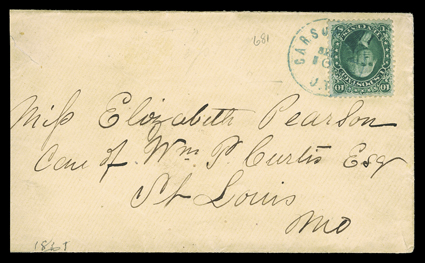 681
CARSO
U.T.
10 10
Miss Elizabeth Pearson
Care of Wm. P. Curtis Esq
St Louis
Mo
1861